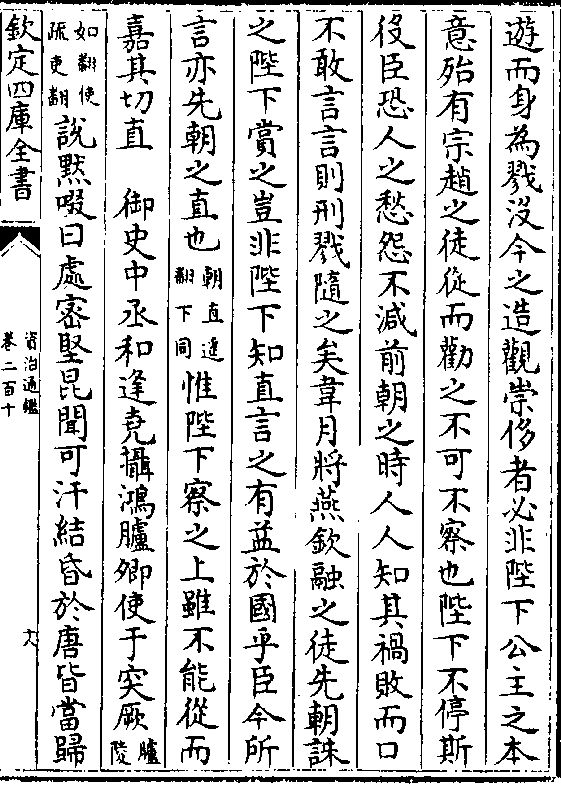 遊而身為戮沒今之造觀崇侈者必非陛下公主之本
意殆有宗趙之徒從而勸之不可不察也陛下不停斯
役臣恐人之愁怨不減前朝之時人人知其禍敗而口
不敢言言則刑戮隨之矣韋月將燕欽融之徒先朝誅
之陛下賞之豈非陛下知直言之有益於國乎臣今所
言亦先朝之直也朝直遥翻下同惟陛下察之上雖不能從而
嘉其切直　御史中丞和逢堯攝鴻臚卿使于突厥臚陵
如翻使疏吏翻說默啜曰處密堅昆聞可汗結昏於唐皆當歸
欽定四庫全書
資治通鑑
卷二百十
六